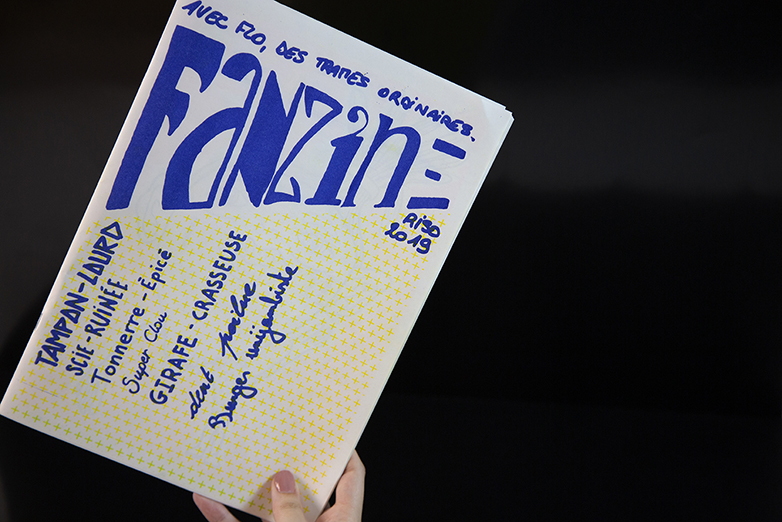 AVEC FLO, DES TRAMES ORDINAIRES.
FANZINE
RISO
2019
TAMPON-LOURD
SCIE-RUINÉE
Tonnerre-Épicé
Super Clou
GIRAFE-CRASSEUSE
dent poilue
Burger unijambiste